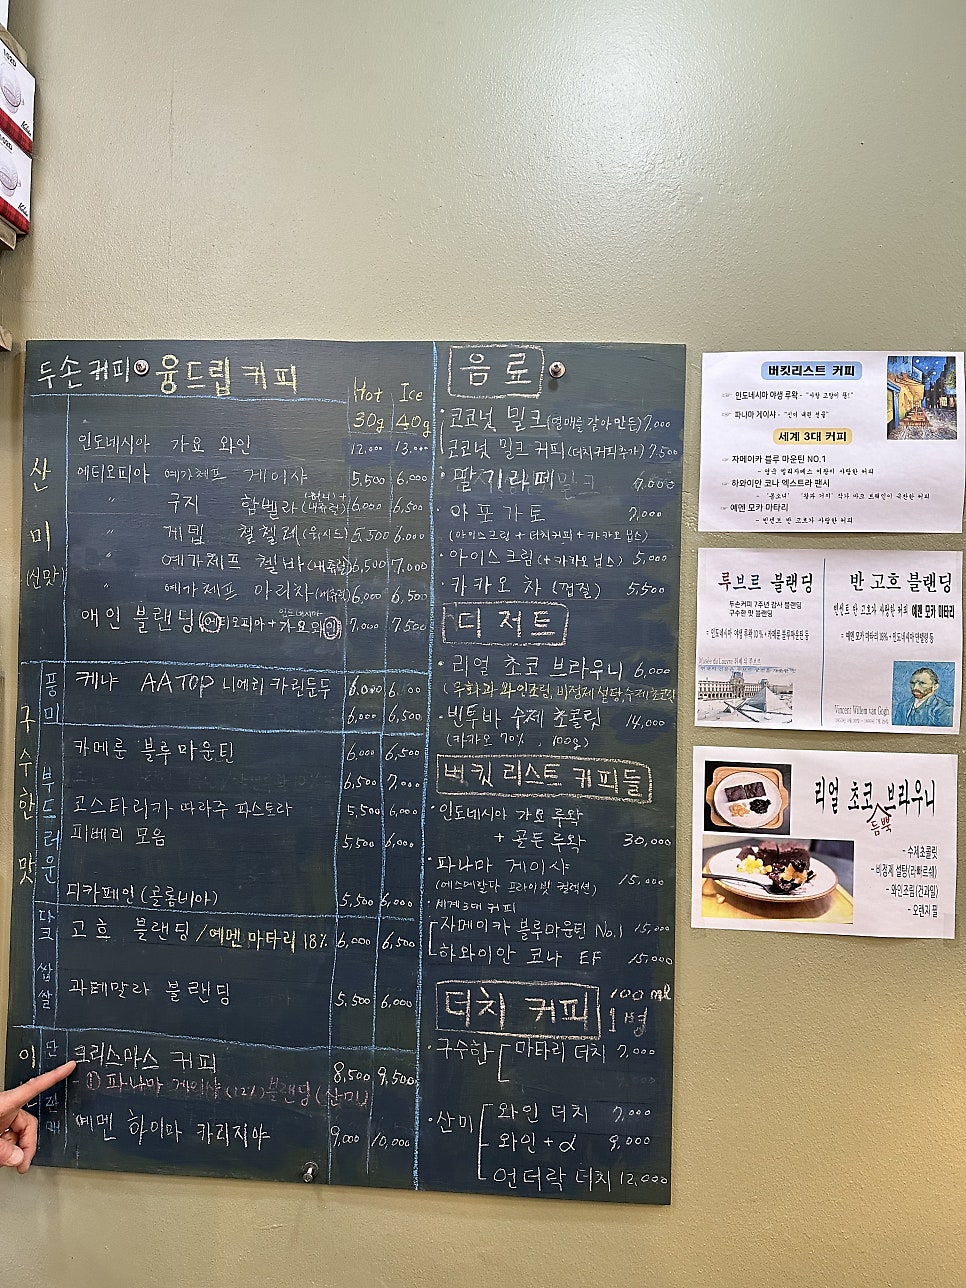 두손커피 융드립 커피
Hot Ice
30g 40g
산미 (신맛)
인도네시아 가요 와인 12,000 13,000
에티오피아 예가체프 게이샤 5,500 6,000
" 구지 함벨라 6,000 6,500
" 게뎁 첼첼레 (워시드) 5,500 6,000
" 예가체프 첼바 (내츄럴) 6,500 7,000
" 예가체프 아리차 (내츄럴) 6,000 6,500
인도네시아
애인 블랜딩 (에티오피아 + 가요와인) 7,000 7,500
구수한 맛
풍미
케냐 AA TOP 니에리 카린둔두 6,000
6,000 6,500
부드러운
카메룬 블루마운틴 6,000 6,500
6,500 7,000
코스타리카 따라주 파스토라 5,500 6,000
피베리 모음 5,500 6,000
디카페인 (콜롬비아) 5,500 6,000
달 쌉쌀
고흐 블랜딩 / 예멘 마타리 18% 6,000 6,500
과테말라 블랜딩 5,500 6,000
크리스마스 커피 8,500 9,500
파나마 게이샤 블랜딩 (산미)
예멘 하이마 카리지야 9,000 10,000
음료
· 코코넛 밀크 (연매를 갈아만든) 7,000
· 코코넛 밀크 커피 (더치커피추가) 7,500
· 딸기라떼 7,000
· 아포가토 7,000
(아이스크림 + 더치커피 + 카카오 닙스)
· 아이스크림 (+ 카카오 닙스) 5,000
· 카카오 차 (껍질) 5,500
디저트
· 리얼 초코 브라우니 6,000
(무화과 와인조림, 비정제 설탕, 수제 초코릿)
· 빈투바 수제 초콜릿 14,000
(카카오 70%, 100g)
버킷 리스트 커피들
· 인도네시아 가요 루왁
+ 골든 루왁 30,000
· 파나마 게이샤
(에스메랄다 프라이빗 컬렉션) 15,000
· 세계 3대 커피
자메이카 블루마운틴 No.1 15,000
하와이안 코나 EF 15,000
더치 커피 100ml 1병
· 구수한 마타리 더치 7,000
· 산미 와인 더치 7,000
와인 + α 9,000
언더락 더치 12,000
버킷리스트 커피
인도네시아 야생 루왁 - "사향 고양이 똥!"
파나마 게이샤 - "신이 내린 선물"
세계 3대 커피
자메이카 블루 마운틴 NO.1
- 영국 엘리자베스 여왕이 사랑한 커피
하와이안 코나 엑스트라 팬시
- '톰소녀' '왕자 거지' 작가 마크 트웨인이 극찬한 커피
예멘 모카 마타리
- 빈센트 반 고흐가 사랑한 커피
루브르 블랜딩
두손커피 7주년 감사 블랜딩
구수한 맛 블랜딩
= 인도네시아 야생 루왁 10% + 카메룬 블루마운틴 등
Musée du Louvre
반 고흐 블랜딩
빈센트 반 고흐가 사랑한 커피 예멘 모카 마타리
= 예멘 모카 마타리 18% + 인도네시아 만델링 등
Vincent Willem van Gogh
리얼 초코 브라우니
듬뿍
- 수제초콜릿
- 비정제 설탕(라빠르쉐)
- 와인조림(건과일)
- 오렌지 필